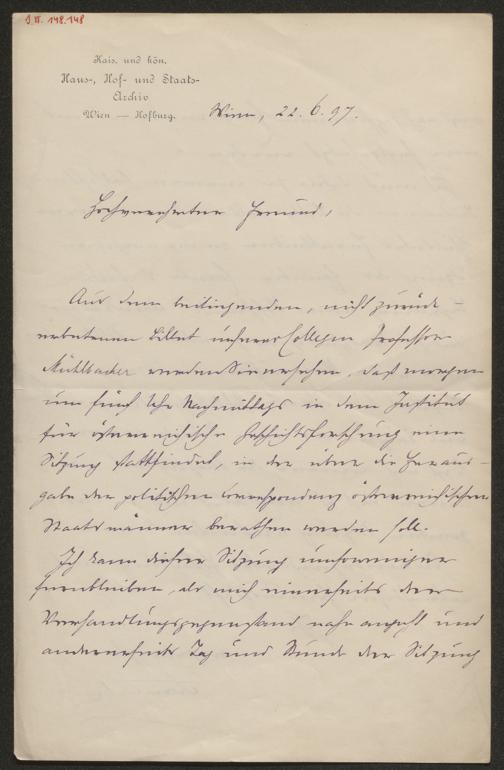 J.N. 148.148
Kais. und kön.
Haus-, Hof- und Staats-
Archiv
Wien — Hofburg.
Wien, 22. 6. 97.
Hochverehrter Freund,
Aus dem beiliegenden, nicht zurück-
erbetenen Billet unseres Collegen Professor
Mühlbacher werden Sie ersehen, daß morgen
um fünf Uhr Nachmittags in dem Institut
für österreichische Geschichtsforschung eine
Sitzung stattfindet, in der über die Heraus-
gabe der politischen Correspondenz österreichischer
Staatsmänner berathen werden soll.
Ich kann dieser Sitzung umsoweniger
fernbleiben, als mich einerseits der
Verhandlungsgegenstand nahe angeht und
andererseits Tag und Stunde der Sitzung